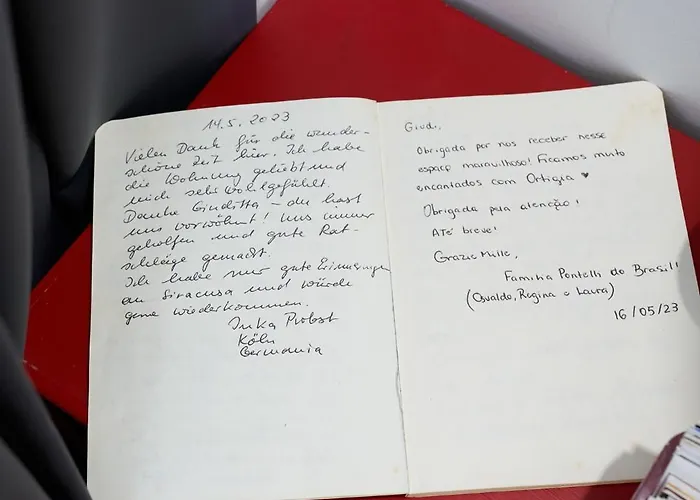 14.5.2023
Vielen Dank für die wunder-
schöne Zeit hier. Ich habe
die Wohnung geliebt und
mich sehr wohlgefühlt.
Danke Giuditta – du hast
uns verwöhnt! Uns immer
geholfen und gute Rat-
schläge gemacht.
Ich habe nur gute Erinnerungen
an Siracusa und würde
gerne wiederkommen.
Inka Probst
Köln
Germania
Giudi,
Obrigada por nos receber nesse
espaço maravilhoso! Ficamos muito
encantados com Ortigia ♥
Obrigada pela atenção!
Até breve!
Grazie Mille,
Familia Pontelli do Brasil!
(Osvaldo, Regina e Laura)
16/05/23